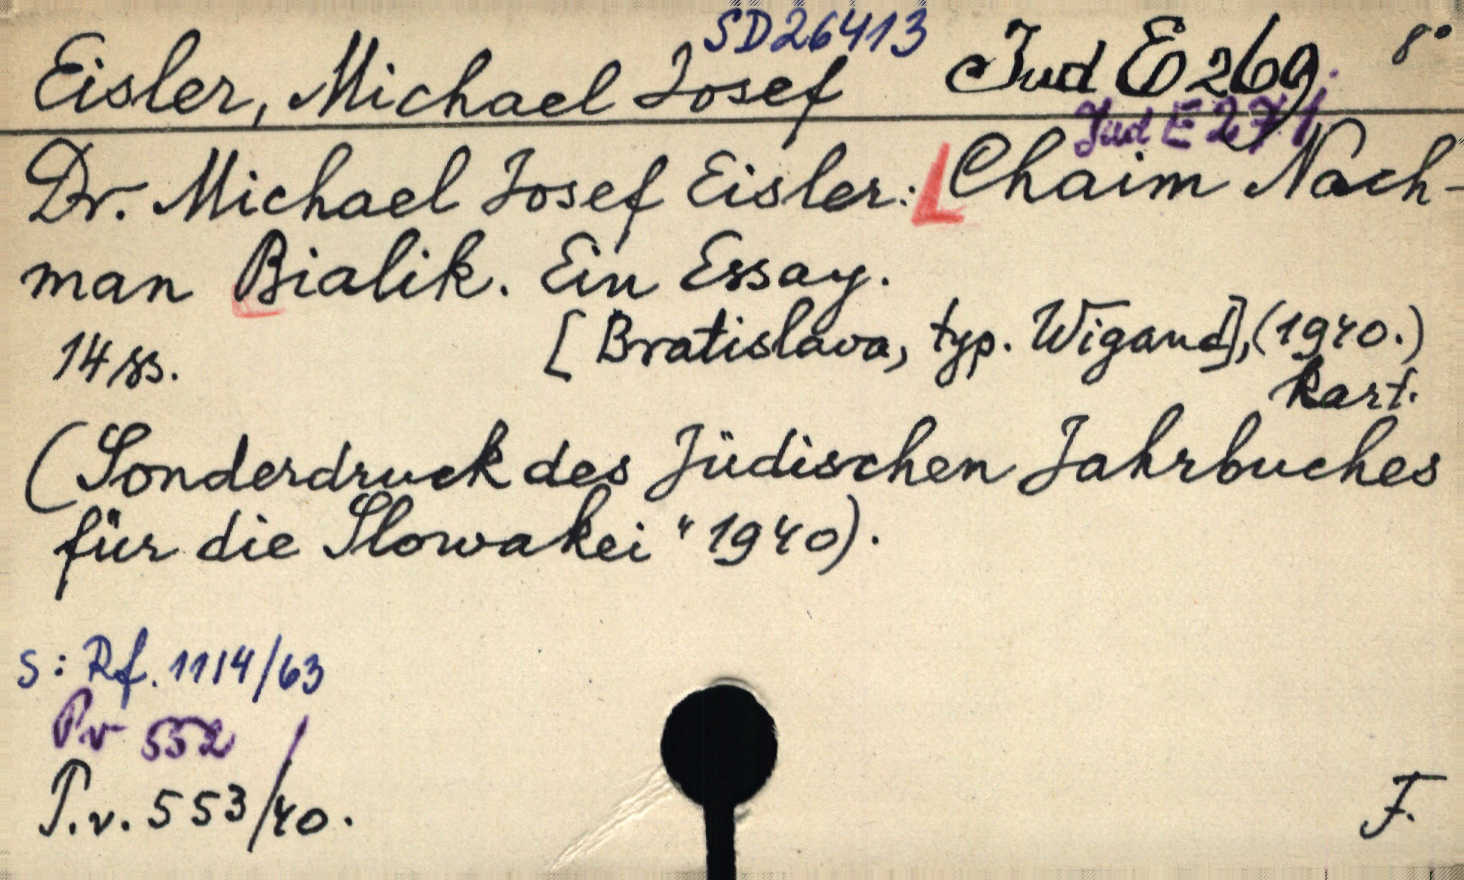 SD26413
Eisler, Michael Josef Jud E 269. 8°
Jud E 271
Dr. Michael Josef Eisler: Chaim Nach-
man Bialik. Ein Essay.
14 ss. [Bratislava, typ. Wigand], (1940.)
kart.
(Sonderdruck des Jüdischen Jahrbuches
für die Slowakei" 1940).
S: Rf. 1114/63
Pv 552 /
P.v. 553/40.
F.